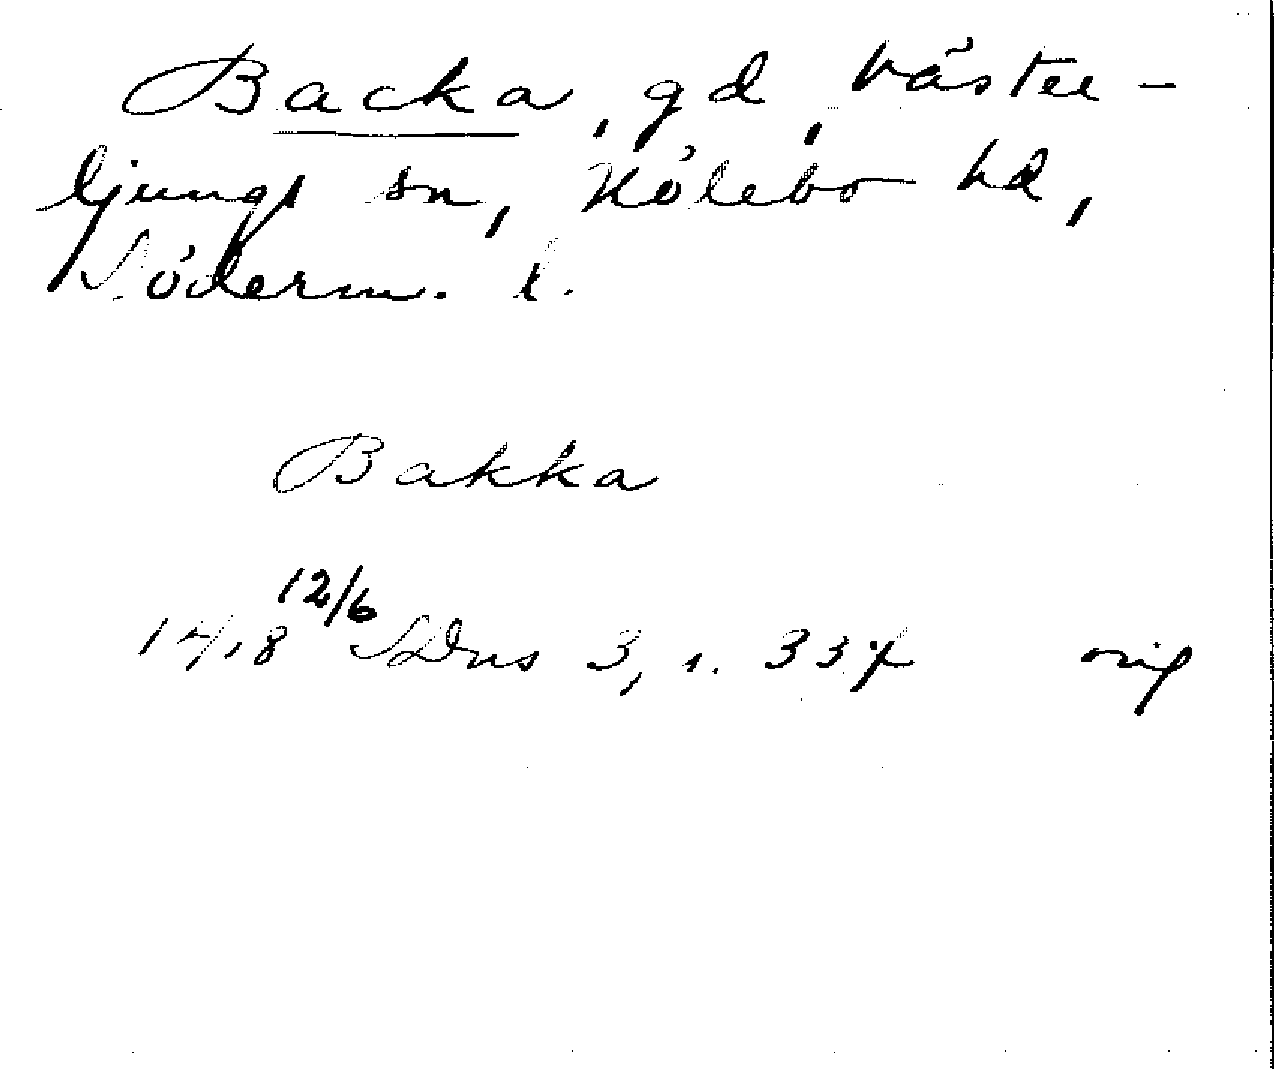 Backa, gd, Väster-
ljungs sn, Hölebo hd,
Söderm. l.
Bakka
1418 12/6 SDns 3, s. 337 orig